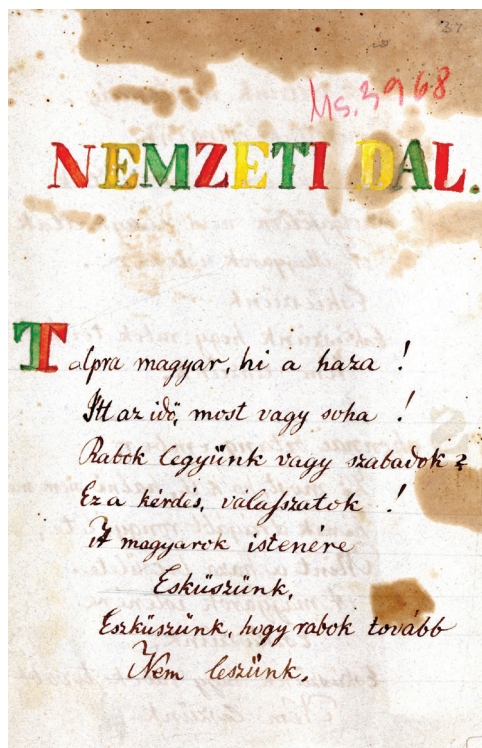 37
Ms. 3968
NEMZETI DAL.
Talpra magyar, hi a haza!
Itt az idő, most vagy soha!
Rabok legyünk vagy szabadok?
Ez a kérdés, válaszszatok!
A magyarok istenére
Esküszünk,
Eszküszünk, hogy rabok tovább
Nem leszünk.